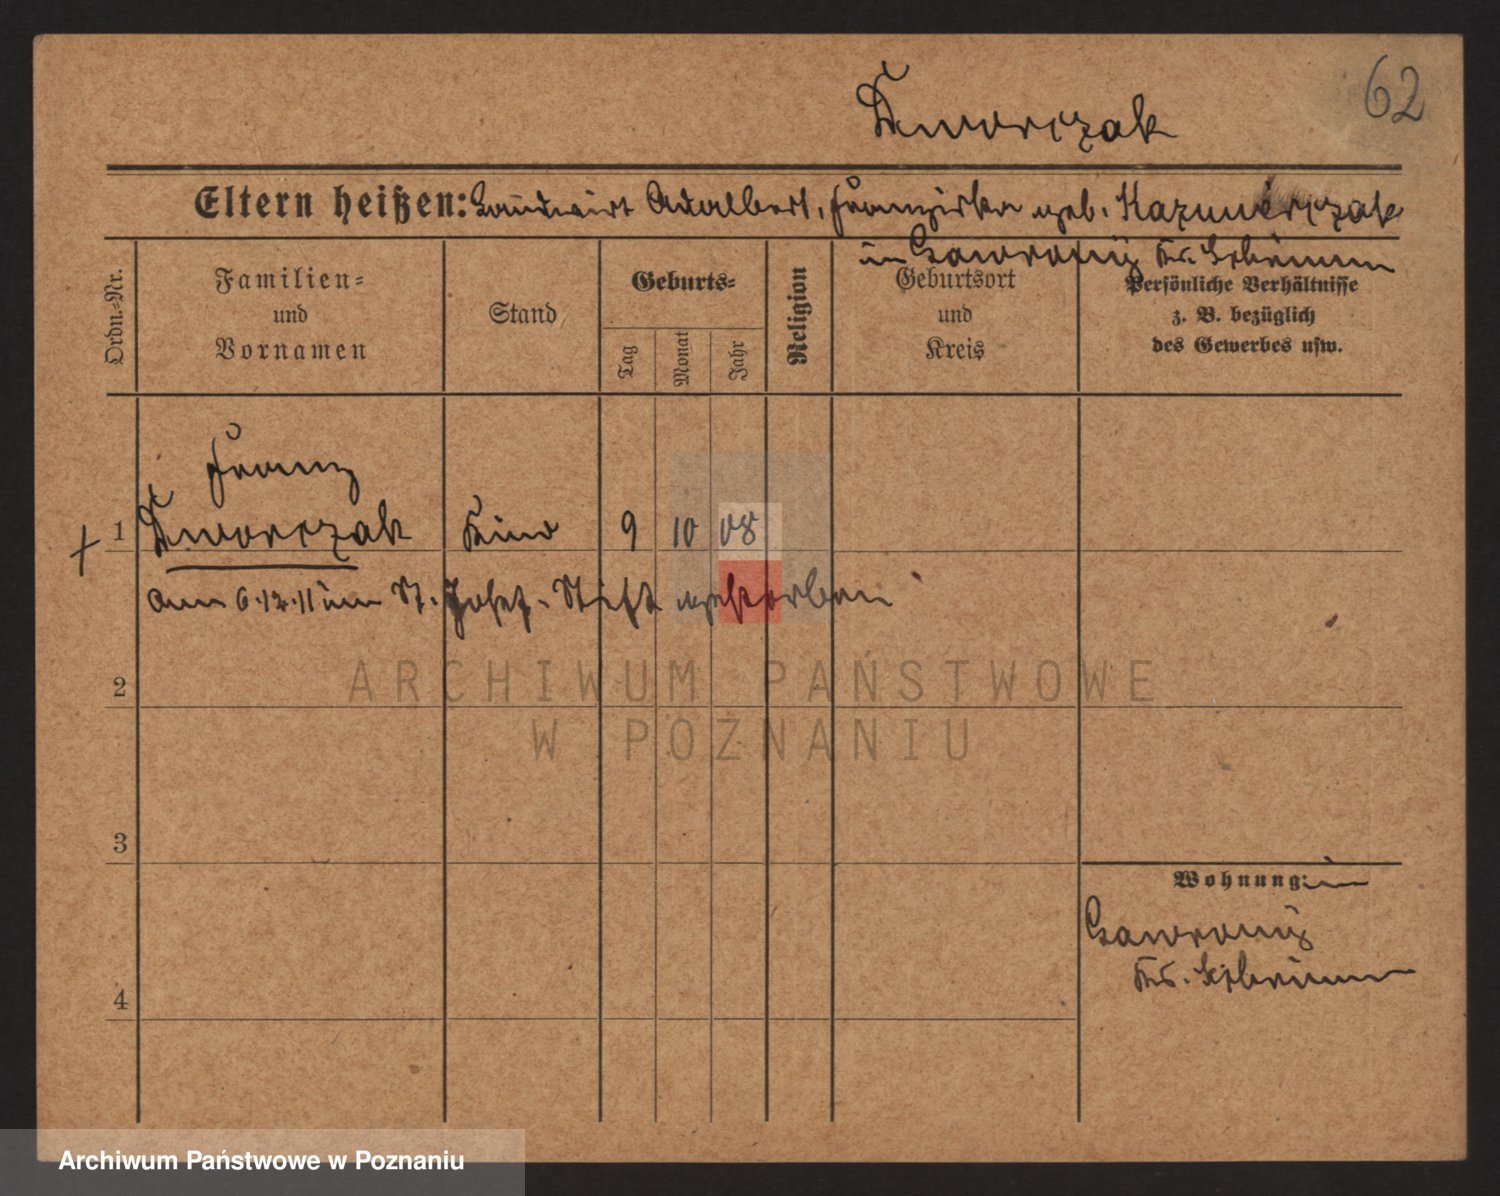 62
Dworczak
Eltern heißen: Landwirt Adalbert, Franziska geb. Kazmierczak
in Gawrony Kr. Schrimm
Ordn.-Nr.
Familien-
und
Vornamen
Stand
Geburts-
Tag
Monat
Jahr
Religion
Geburtsort
und
Kreis
Persönliche Verhältnisse
z. B. bezüglich
des Gewerbes usw.
Franz
+ 1 Dworczak Kind 9 10 08
am 6.12.11 im St. Josef-Stift gestorben
ARCHIWUM PAŃSTWOWE
W POZNANIU
2
3
Wohnung: in
Gawrony
Kr. Schrimm
4
Archiwum Państwowe w Poznaniu